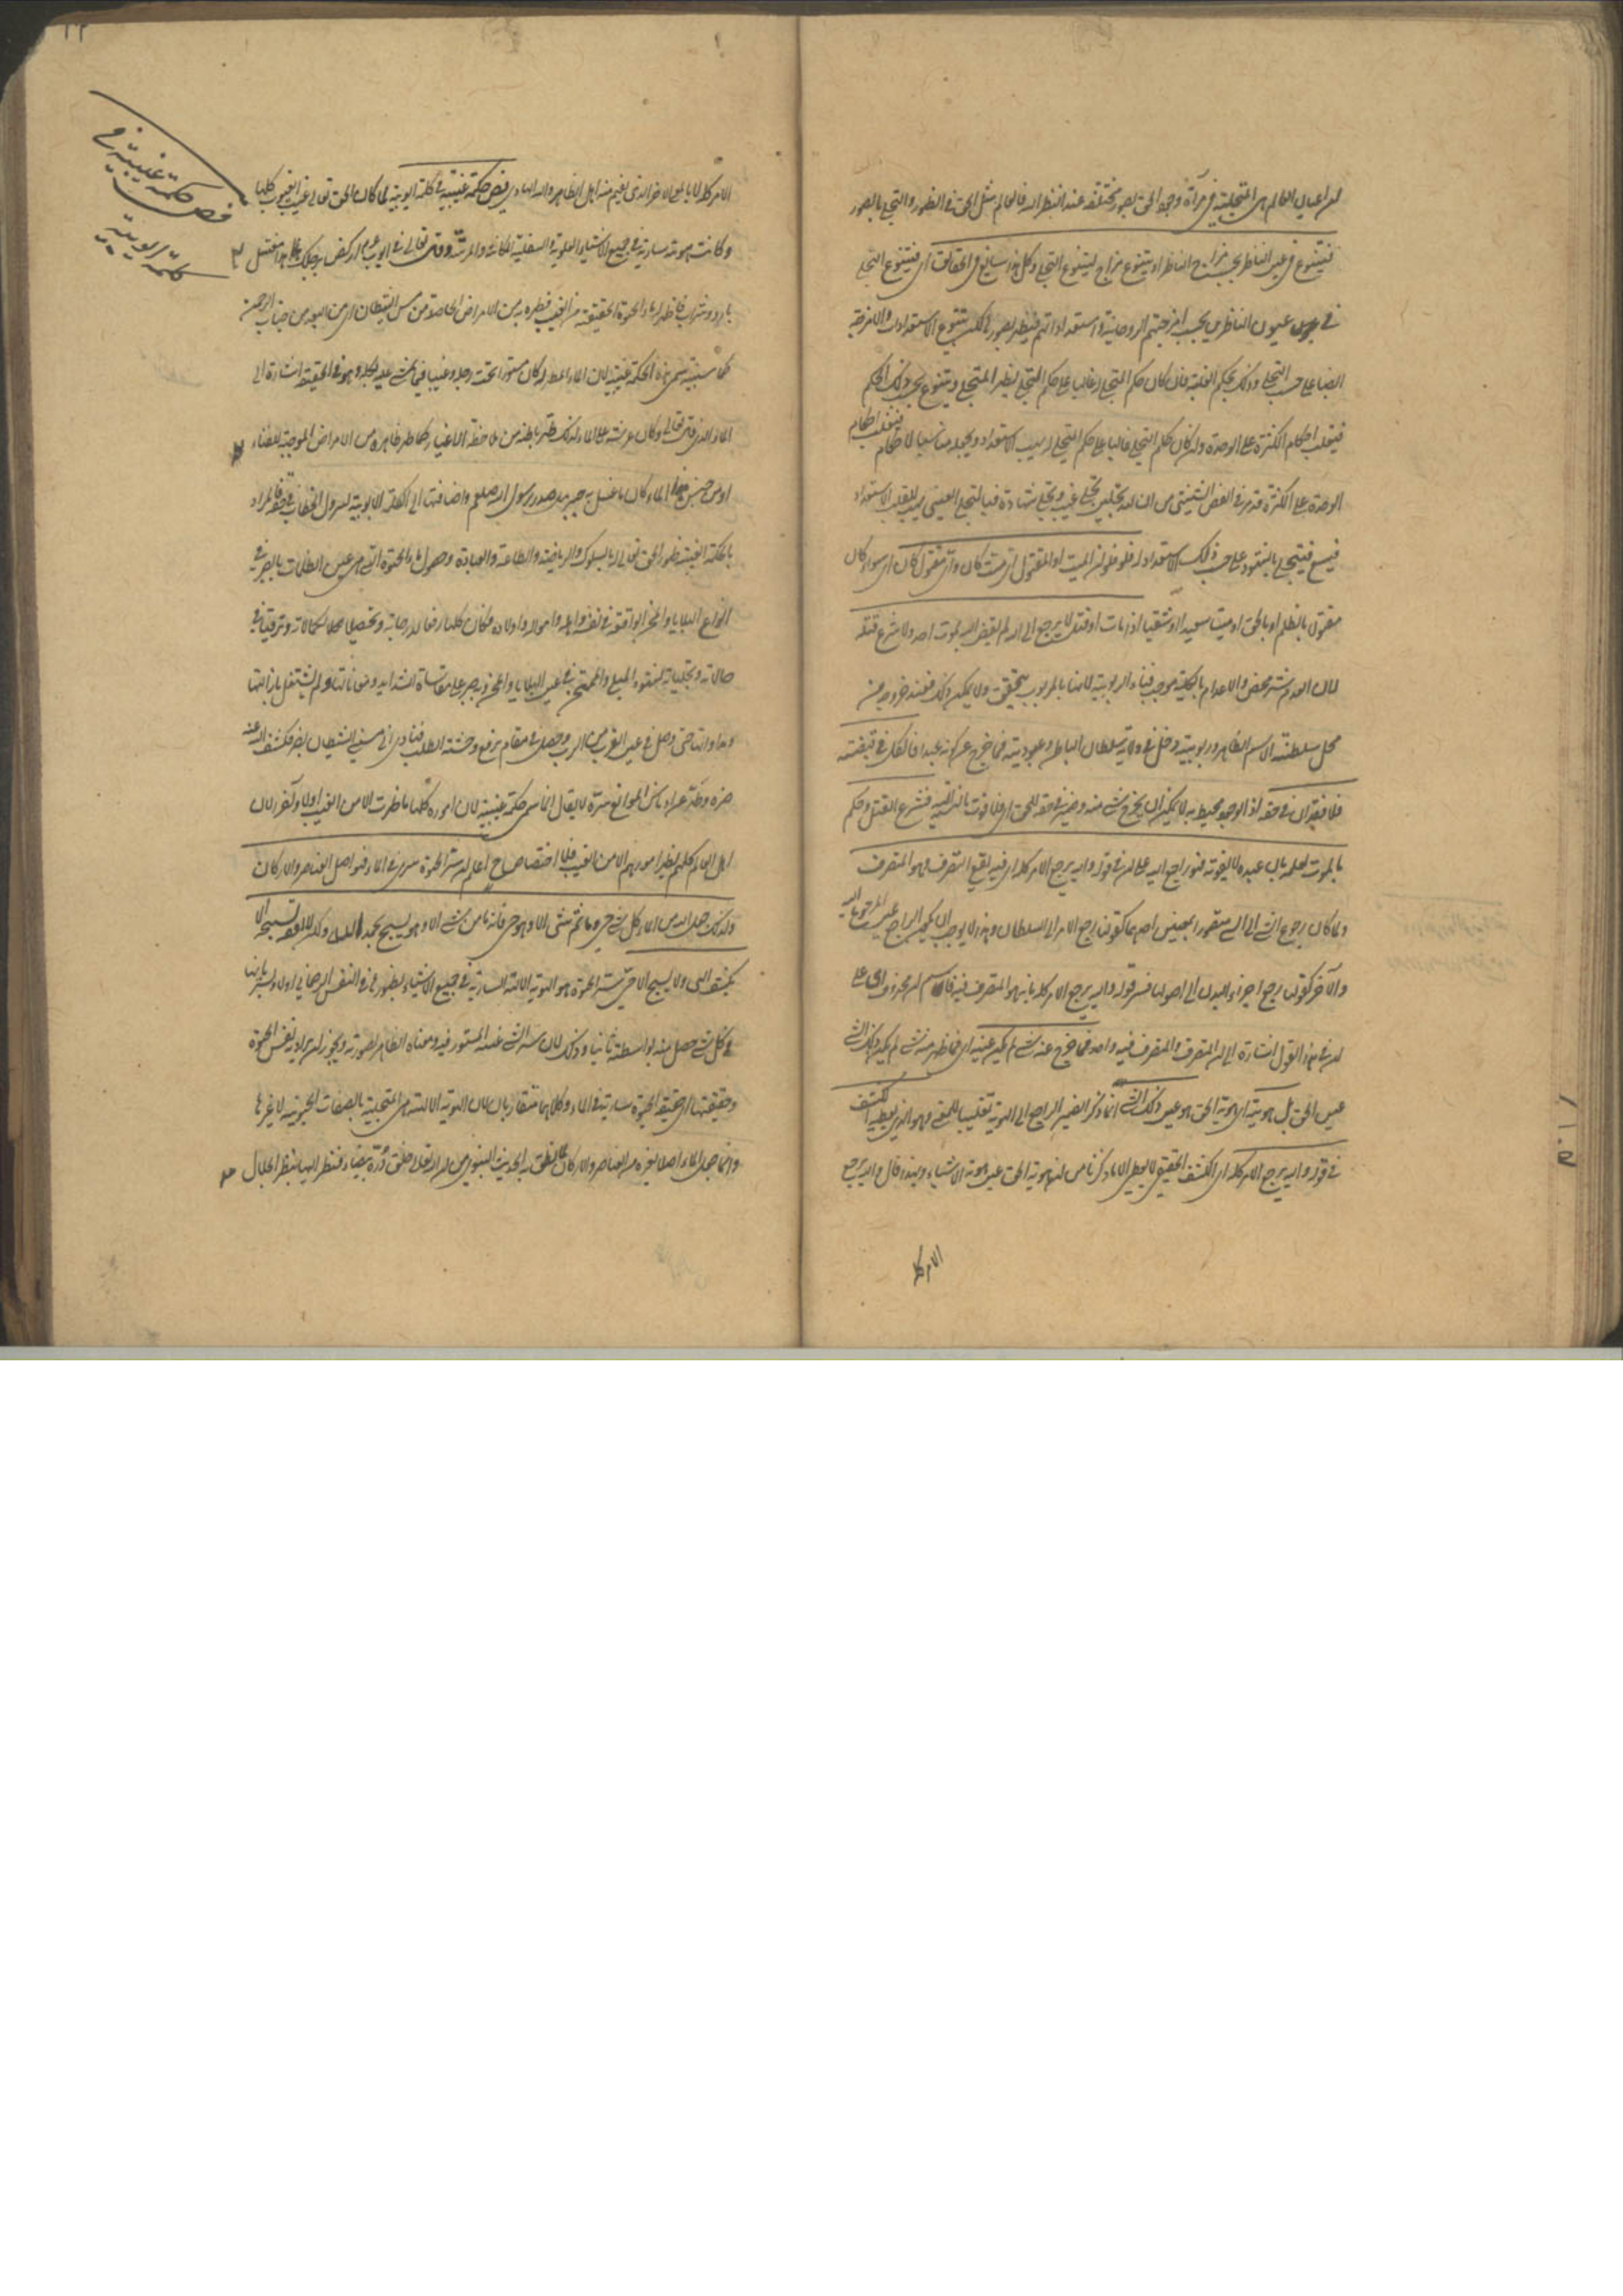 ان اعيان العالم هى المتجلية فى مرآة وجود الحق بصور مختلفة عند النظر اليه فالعالم مثل الحق فى الظهور والتجلى بالصور
فيتنوع فى عين الناظر بحسب مزاج الناظر او يتنوع مزاج لتنوع التجلى وكل هذا سايغ فى الحقايق اى فيتنوع التجلى
فى عيون الناظرين بحسب امزجتهم الروحانية واستعداداتهم فيظهر بصور تلك وتتنوع الاستعدادات والامزجة
ايضا على حسب التجلى وذلك بحكم الغلبة فان كان حكم المتجلى له غالبا على حكم التجلى يظهر المتجلى ويتنوع بحسب ذلك الحكم
فيغلب احكام الكثرة على الوحدة وان كان حكم التجلى غالبا على حكم المتجلى له يهب الاستعداد ويجعله مناسبا لاحكام فيغلب احكام
الوحدة على الكثرة وقد مر فى الفص الشيثى من ان لله تجليين تجلى غيب وتجلى شهادة فبالتجلى الغيبى يهب للقلب الاستعداد
فيسع فيتجلى بالشهود على حسب ذلك الاستعداد له فلو ان الميت او المقتول اى ميت كان واى مقتول كان اى سواء كان
مقتول بالظلم او بالحق او ميت سعيد او شقيا اذا مات او قتل لا يرجع الى الله لم يقض الله بموت احد ولا شرع قتله
لان العدم شر محض والاعدام بالكلية موجب فناء الربوبية لانها بالمربوب يتحقق ولا يمكن ذلك فعند خروجه من
محل سلطنة الاسم الظاهر وربوبيته دخل فى ولاية سلطان الباطن وعبوديته فما خرج عن كونه عبدا فالكل فى قبضته
فلا فقدان فى حقه اذ الوجود محيط به لا يمكن ان يخرج شئ منه وضمير فى حقه للحق اى فلا فوت بالنسبة اليه فشرع القتل وحكم
بالموت لعلمه بان عبده لا يفوته فهو راجع اليه على ان فى قوله واليه يرجع الامر كله اى فيه يقع التصرف وهو المتصرف
ولما كان رجوع الشئ الى الشئ مقصورا بمعنيين احدهما كقولنا رجع الامر الى السلطان وهذا لا يوجب ان يكون الراجع عين المرجوع اليه
والآخر كقولنا رجع اجزاء البدن الى اصولها فسر قوله واليه يرجع الامر كله بانه هو المتصرف فيه فاسم ان محذوف اى على
ان فى هذا القول اشارة الى ان المتصرف والمتصرف فيه واحد فما خرج عنه شئ لم يكن عينه اى فما ظهر منه شئ لم يكن ذلك الشئ
عين الحق بل هويته اى هوية الحق هو عين ذلك الشئ انما ذكر الضمير الراجع الى الهوية تغليبا للمعنى وهو الذى يعطيه الكشف
فى قوله واليه يرجع الامر كله اى الكشف الحقيقى لا يعطى الا ما ذكرنا من ان هوية الحق عين هوية الاشياء ولهذا قال واليه يرجع
الامر كله
الامر كله لا بالمعنى الآخر الذى يفهم منه اهل الظاهر والله الهادى فص حكمة غيبية فى كلمة ايوبية لما كان الحق تعالى غيب الغيوب كلها
فص حكمة غيبية فى
كلمة ايوبية
وكانت هويته سارية فى جميع الاشياء العلوية والسفلية المكانية والمرتبية وقال تعالى فى ايوب عم اركض برجلك هذا مغتسل
بارد وشراب فاظهر له ماء الحيوة الحقيقية من الغيب فطهره به من الامراض الحاصلة من مس الشيطان اى من البعد من جناب الرحمن
كما سنبينه سمى هذه الحكمة غيبية لان الماء المطهر له كان مستورا تحت رجله وغيبا فيما يمشى عليه برجله وهو فى الحقيقة اشارة الى
الماء الذى قال تعالى وكان عرشه على الماء ولذلك طهر باطنه من ملاحظة الاغيار كما طهر ظاهره من الامراض الموجبة للفناء
او من جنس الماء كان ما غسل به جبريل صدر رسول الله صلعم واضافتها الى الكلمة الايوبية لنزول الخطاب فى حقه فالمراد
بالحكمة الغيبية ظهور الحق تعالى له بالسلوك والرياضة والطاعة والعبادة وحصول ماء الحيوة التى هى عين الظلمات بالصبر فى
انواع البلايا والمحن الواقعة فى نفسه واهله وامواله واولاده فكان كلها رفعا لدرجاته وتحصيلا لكمالاته وترقيا فى
حالاته وتجلياته لشهوده المبلى والممتحن فى عين البلايا والمحن وصبر على مقاساة الشدايد ولم يشتغل بازالتها
ومداواتها حتى وصل فى عين القرب من الرب وحصل فى مقام يرفع وحشته الطلب فنادى انى مسنى الشيطان بضر فكشف الله عنه
ضره وطهره عن ادناس الموانع سره لا يقال انما سمى حكمة غيبية لان اموره كلها ما ظهرت الا من الغيب اولا وآخرا لان
اهل العالم كلهم يظهر امورهم الا من الغيب فلما اختصاص اعلم ان سر الحيوة سرى فى الماء فهو اصل العناصر والاركان
ولذلك جعل الله من الماء كل شئ حى وما ثم شئ الا وهو حى فانه ما من شئ الا وهو يسبح بحمد الله ولكن لا نفقه تسبيحه الا
بكشف الهى ولا يسبح الا حى سر الحيوة هو الهوية الالهية السارية فى جميع الاشياء بظهورها فى النفس الرحمانى اولا
فى كل شئ حصل منه بواسطة ثانيا وذلك لان سر الشئ غيبه المستور فيه ومعناه الظاهر بصورته ويجوز ان يراد به نفس الحيوة
وحقيقتها اى حقيقة الحيوة سارية فى الماء وكلاهما متقاربان لان الهوية الالهية هى المتجلية بالصفات الحيوتية لا غيرها
وانما جعل الماء اصلا لغيره من العناصر والاركان لما نطق به الحديث النبوى من ان الله تعالى خلق درة بيضاء فنظر اليها بنظر الجلال